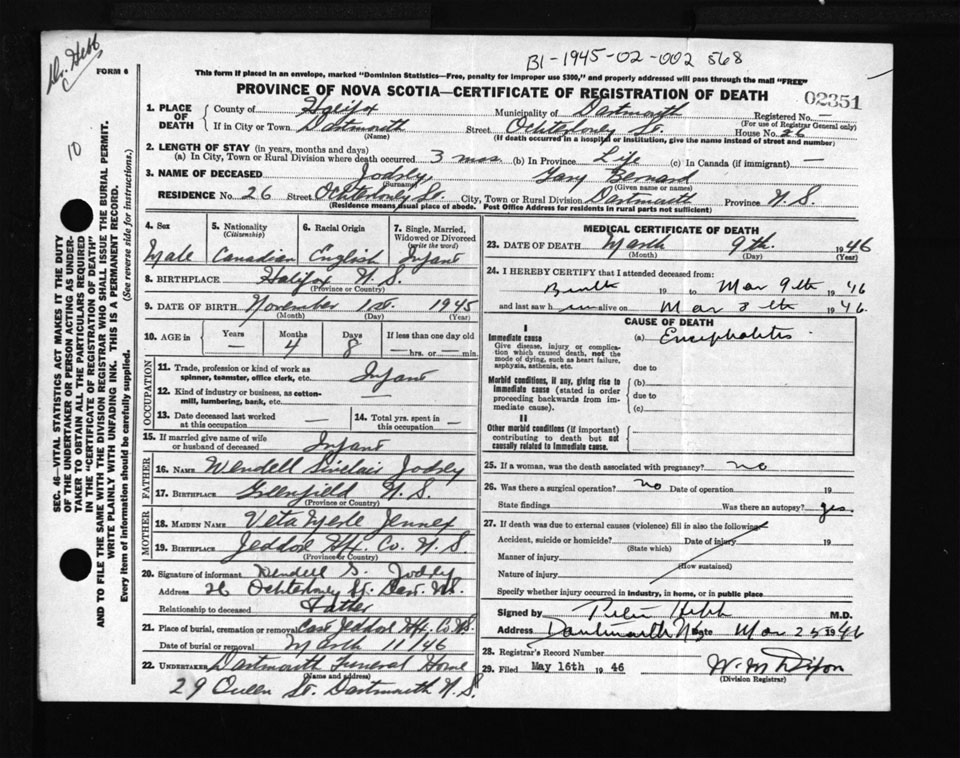 Dr. Hebb
B1-1945-02-002 568
FORM 6
This form if placed in an envelope, marked "Dominion Statistics—Free, penalty for improper use $300," and properly addressed will pass through the mail "FREE"
PROVINCE OF NOVA SCOTIA—CERTIFICATE OF REGISTRATION OF DEATH
02351
1. PLACE OF DEATH County of Halifax Municipality of Dartmouth Registered No. —
(For use of Registrar General only)
If in City or Town Dartmouth Street Ochterloney St. House No. 26
(Name) (If death occurred in a hospital or institution, give the name instead of street and number)
2. LENGTH OF STAY (in years, months and days)
(a) In City, Town or Rural Division where death occurred 3 mos (b) In Province Life (c) In Canada (if immigrant) —
3. NAME OF DECEASED Jodrey, Gary Bernard
(Surname) (Given name or names)
RESIDENCE No. 26 Street Ochterloney St. City, Town or Rural Division Dartmouth Province N.S.
(Residence means usual place of abode. Post Office Address for residents in rural parts not sufficient)
4. Sex Male
5. Nationality (Citizenship) Canadian
6. Racial Origin English
7. Single, Married, Widowed or Divorced (write the word) Infant
8. BIRTHPLACE Halifax N.S.
(Province or Country)
9. DATE OF BIRTH November 1st. 1945
(Month) (Day) (Year)
10. AGE in Years — Months 4 Days 8 If less than one day old
—hrs. or —min.
OCCUPATION
11. Trade, profession or kind of work as spinner, teamster, office clerk, etc. Infant
12. Kind of industry or business, as cotton-mill, lumbering, bank, etc. —
13. Date deceased last worked at this occupation —
14. Total yrs. spent in this occupation —
15. If married give name of wife or husband of deceased Infant
FATHER
16. NAME Wendell Sinclair Jodrey
17. BIRTHPLACE Greenfield N.S.
(Province or Country)
MOTHER
18. MAIDEN NAME Veta Merle Jennex
19. BIRTHPLACE Jeddore Hfx. Co. N.S
(Province or Country)
20. Signature of informant Wendell S. Jodrey
Address 26 Ochterloney St. Dart. N.S.
Relationship to deceased Father
21. Place of burial, cremation or removal East Jeddore Hfx. Co N.S.
Date of burial or removal March 11/46
22. UNDERTAKER Dartmouth Funeral Home
(Name and address)
29 Queen St. Dartmouth N.S.
MEDICAL CERTIFICATE OF DEATH
23. DATE OF DEATH March 9th. 1946
(Month) (Day) (Year)
24. I HEREBY CERTIFY that I attended deceased from:
Birth 19 to Mar 9th 1946
and last saw him alive on Mar 8th 1946.
CAUSE OF DEATH
I
Immediate cause
Give disease, injury or complication which caused death, not the mode of dying, such as heart failure, asphyxia, asthenia, etc.
(a) Encephalitis
due to
Morbid conditions, if any, giving rise to immediate cause (stated in order proceeding backwards from immediate cause).
(b)
due to
(c)
II
Other morbid conditions (if important) contributing to death but not causally related to immediate cause.
25. If a woman, was the death associated with pregnancy? no
26. Was there a surgical operation? no Date of operation 19
State findings Was there an autopsy? yes
27. If death was due to external causes (violence) fill in also the following
Accident, suicide or homicide? Date of injury 19
(State which)
Manner of injury
(How sustained)
Nature of injury
Specify whether injury occurred in industry, in home, or in public place
Signed by Hebb M.D.
Address Dartmouth N.S. Date Mar 25 1946
28. Registrar's Record Number
29. Filed May 16th 1946 W. M Dixon
(Division Registrar)
10
SEC. 46—VITAL STATISTICS ACT MAKES IT THE DUTY
OF THE UNDERTAKER OR PERSON ACTING AS UNDER-
TAKER TO OBTAIN ALL THE PARTICULARS REQUIRED
IN THE "CERTIFICATE OF REGISTRATION OF DEATH"
AND TO FILE THE SAME WITH THE DIVISION REGISTRAR WHO SHALL ISSUE THE BURIAL PERMIT.
WRITE PLAINLY WITH UNFADING INK. THIS IS A PERMANENT RECORD.
Every item of information should be carefully supplied. (See reverse side for instructions.)